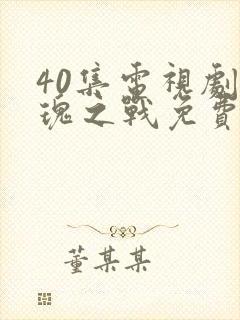 40集電視劇
瑰之戰免費
董某某